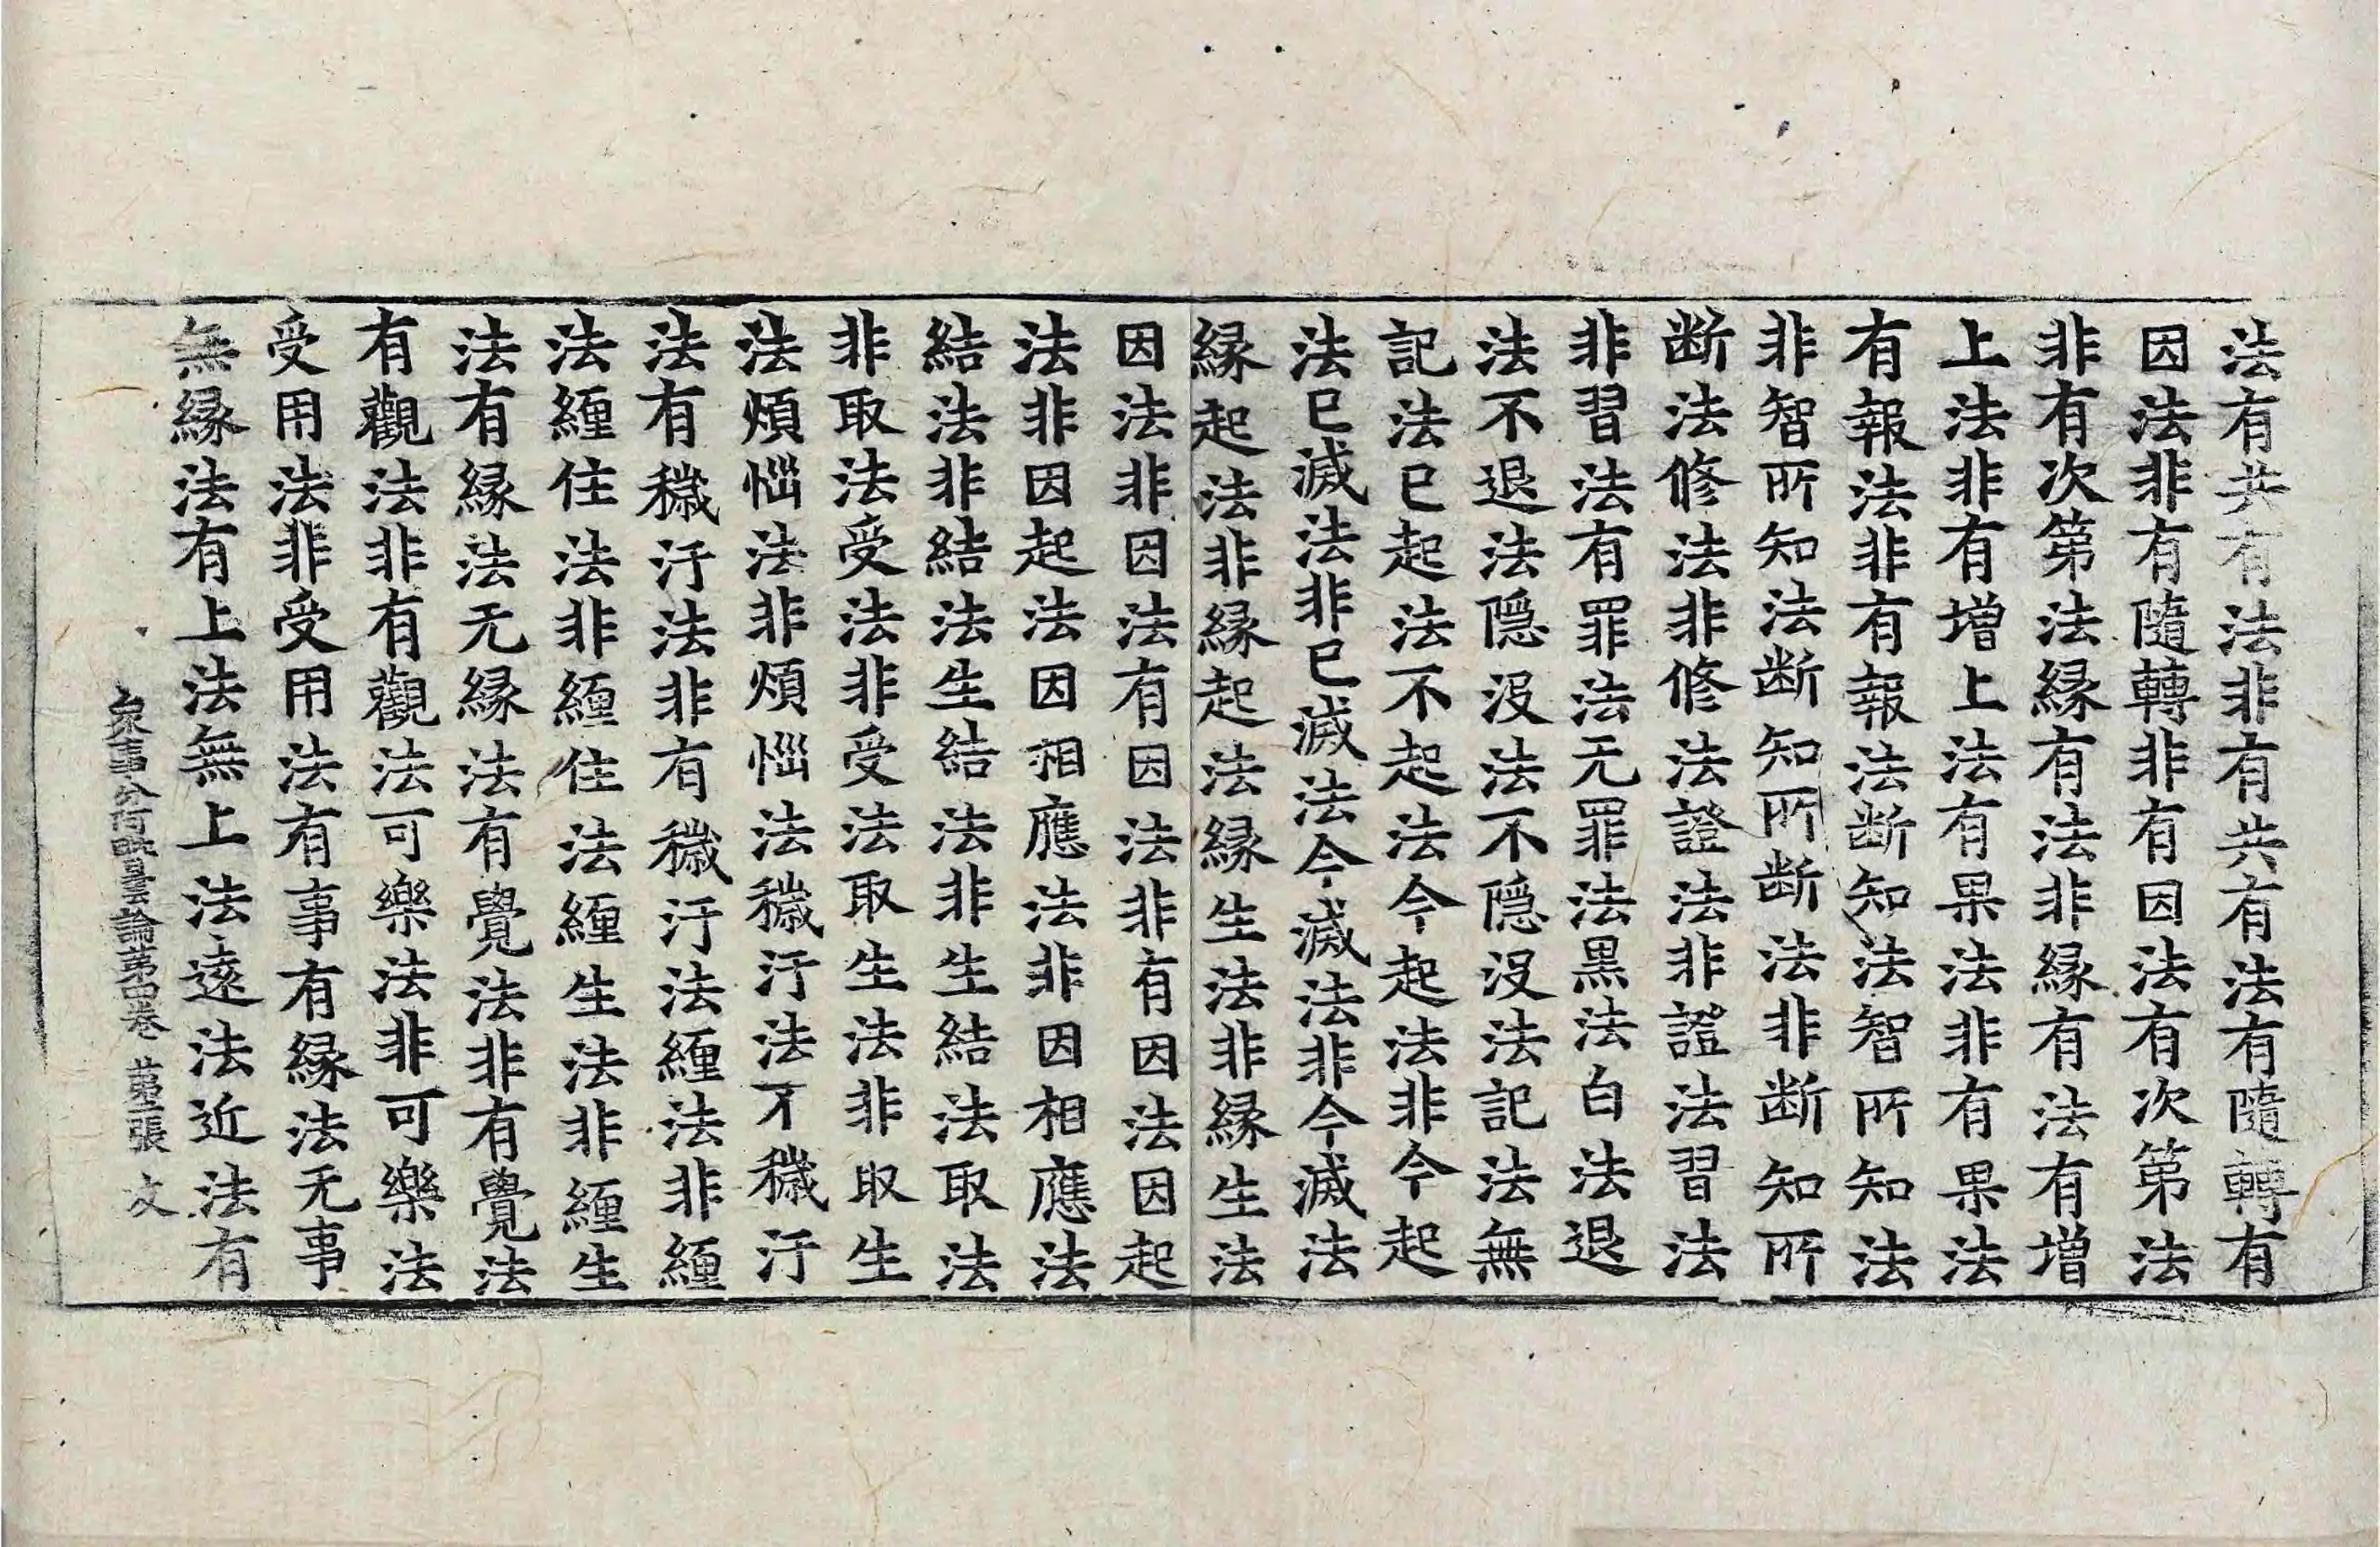 法有共有法非有共有法有隨轉有
因法非有隨轉非有因法有次第法
非有次第法縁有法非縁有法有増
上法非有増上法有果法非有果法
有報法非有報法断知法智所知法
非智所知法断知所断法非断知所
断法修法非修法證法非證法習法
非習法有罪法无罪法黒法白法退
法不退法隠没法不隠没法記法無
記法已起法不起法今起法非今起
法已滅法非已滅法今滅法非今滅法
縁起法非縁起法縁生法非縁生法
因法非因法有因法非有因法因起
法非因起法因相應法非因相應法
結法非結法生結法非生結法取法
非取法受法非受法取生法非取生
法煩惱法非煩惱法穢汙法不穢汙
法有穢汙法非有穢汙法纏法非纏
法纏住法非纏住法纏生法非纏生
法有縁法无縁法有覺法非有覺法
有觀法非有觀法可樂法非可樂法
受用法非受用法有事有縁法无事
無縁法有上法無上法遠法近法有
衆事分阿毗曇論第四卷 第張 文